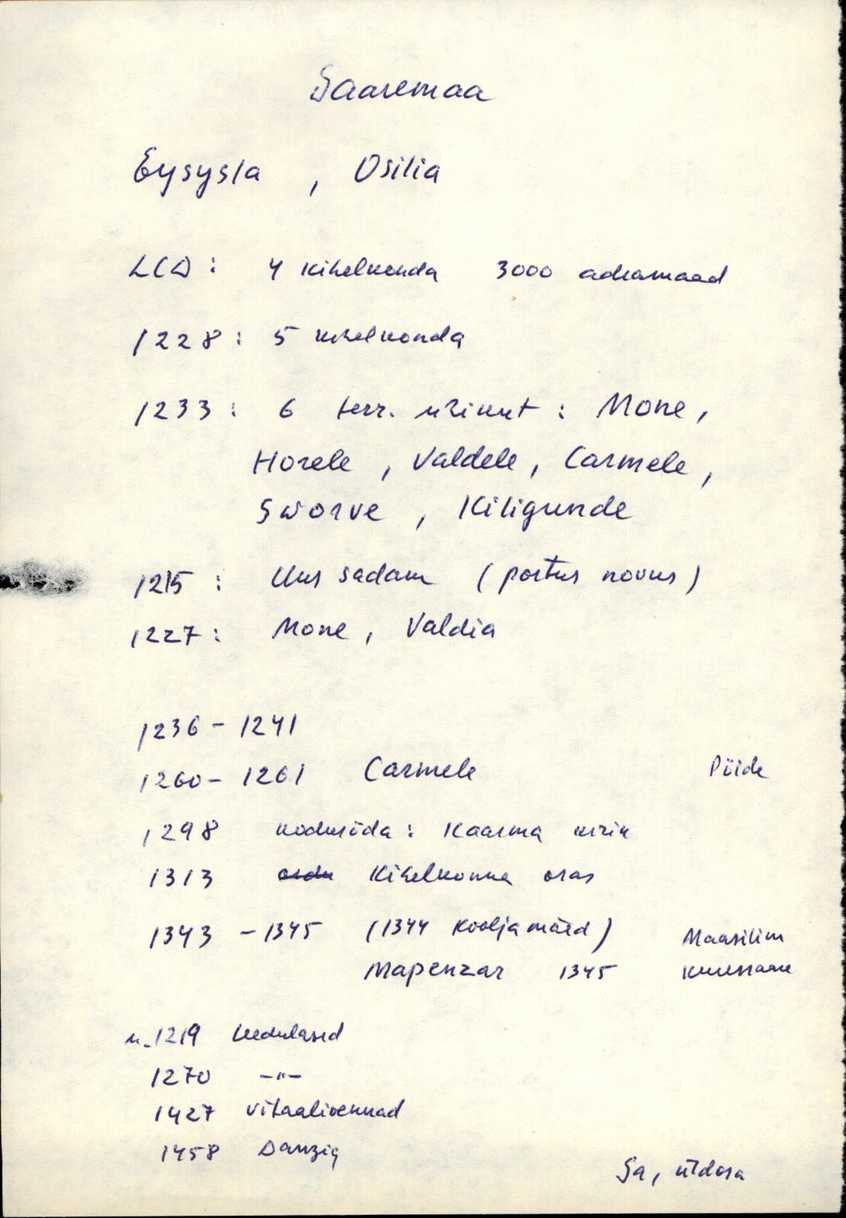 Saaremaa
Eysysla , Osilia
LCD : 4 kihelkonda 3000 adramaad
1228 : 5 kihelkonda
1233 : 6 terr. üksust : Mone,
Horele , Valdele, Carmele,
Sworve , Kiligunde
1215 : Uus sadam (portus novus)
1227 : Mone, Valdia
1236 - 1241
1260 - 1261 Carmele Pöide
1298 kodusõda : Kaarma kirik
1313 ordu Kihelkonna oras
1343 - 1345 (1344 Kooljamäed) Maasilinn
Mapenzar 1345 Kuressaare
u. 1219 leedulased
1270 -"-
1427 vitaalivennad
1458 Danzig
Sa, üldosa